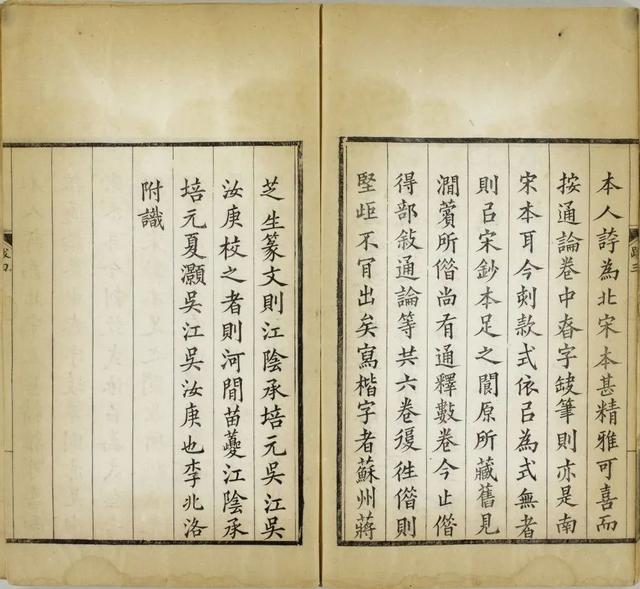 本人誇為北宋本甚精雅可喜而
按通論卷中昚字缺筆則亦是南
宋本耳今刻款式依㠯為式無者
則㠯宋鈔本足之閬原所藏舊見
澗薲所借尚有通釋數卷今止借
得部敍通論等共六卷復往借則
堅歫不肎出矣寫楷字者蘇州蔣
芝生篆文則江陰承培元吳江吳
汝庚校之者則河閒苗夔江陰承
培元夏灝吳江吳汝庚也李兆洛
附識